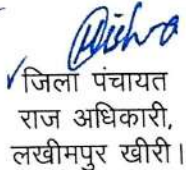 जिला पंचायत
राज अधिकारी,
लखीमपुर खीरी।